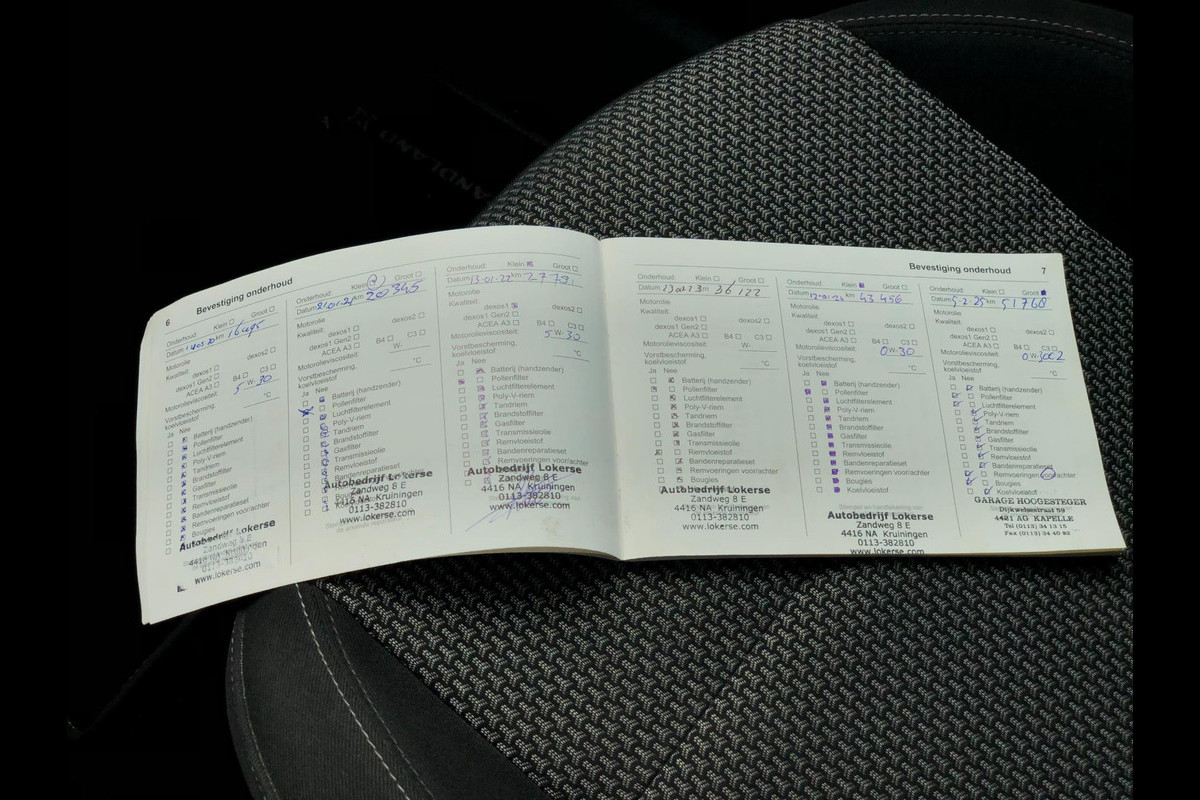 6
Bevestiging onderhoud
Onderhoud: Klein Groot
Datum km
Motorolie
Kwaliteit:
dexos1 dexos2
dexos1 Gen2
ACEA A3 B4 C3
Motorolieviscositeit: 5 W- 30
Vorstbescherming,
koelvloeistof °C
Ja Nee
Batterij (handzender)
Pollenfilter
Luchtfilterelement
Poly-V-riem
Tandriem
Brandstoffilter
Gasfilter
Transmissieolie
Remvloeistof
Bandenreparatieset
Remvoeringen voor/achter
Bougies
Autobedrijf Lokerse
Zandweg 8 E
4416 NA Kruiningen
0113-382810
www.lokerse.com
Onderhoud: Klein Groot
Datum km 20 345
Motorolie
Kwaliteit:
dexos1 dexos2
dexos1 Gen2
ACEA A3 B4 C3
Motorolieviscositeit: W-
Vorstbescherming,
koelvloeistof °C
Ja Nee
Batterij (handzender)
Pollenfilter
Luchtfilterelement
Poly-V-riem
Tandriem
Brandstoffilter
Gasfilter
Transmissieolie
Remvloeistof
Bandenreparatieset
Autobedrijf Lokerse
Zandweg 8 E
4416 NA Kruiningen
0113-382810
www.lokerse.com
Onderhoud: Klein Groot
Datum 13-01-22 km
Motorolie
Kwaliteit:
dexos1 dexos2
dexos1 Gen2
ACEA A3 B4 C3
Motorolieviscositeit: 5 W- 30
Vorstbescherming,
koelvloeistof °C
Ja Nee
Batterij (handzender)
Pollenfilter
Luchtfilterelement
Poly-V-riem
Tandriem
Brandstoffilter
Gasfilter
Transmissieolie
Remvloeistof
Bandenreparatieset
Remvoeringen voor/achter
Autobedrijf Lokerse
Zandweg 8 E
4416 NA Kruiningen
0113-382810
www.lokerse.com
Bevestiging onderhoud 7
Onderhoud: Klein Groot
Datum km 36 122
Motorolie
Kwaliteit:
dexos1 dexos2
dexos1 Gen2
ACEA A3 B4 C3
Motorolieviscositeit: W-
Vorstbescherming,
koelvloeistof °C
Ja Nee
Batterij (handzender)
Pollenfilter
Luchtfilterelement
Poly-V-riem
Tandriem
Brandstoffilter
Gasfilter
Transmissieolie
Remvloeistof
Bandenreparatieset
Remvoeringen voor/achter
Bougies
Autobedrijf Lokerse
Zandweg 8 E
4416 NA Kruiningen
0113-382810
www.lokerse.com
Onderhoud: Klein Groot
Datum km 43 456
Motorolie
Kwaliteit:
dexos1 dexos2
dexos1 Gen2
ACEA A3 B4 C3
Motorolieviscositeit: 0 W- 30
Vorstbescherming,
koelvloeistof °C
Ja Nee
Batterij (handzender)
Pollenfilter
Luchtfilterelement
Poly-V-riem
Tandriem
Brandstoffilter
Gasfilter
Transmissieolie
Remvloeistof
Bandenreparatieset
Remvoeringen voor/achter
Bougies
Koelvloeistof
Autobedrijf Lokerse
Zandweg 8 E
4416 NA Kruiningen
0113-382810
www.lokerse.com
Onderhoud: Klein Groot
Datum 5-2-25 km 51760
Motorolie
Kwaliteit:
dexos1 dexos2
dexos1 Gen2
ACEA A3 B4 C3
Motorolieviscositeit:
Vorstbescherming,
koelvloeistof °C
Ja Nee
Batterij (handzender)
Pollenfilter
Luchtfilterelement
Poly-V-riem
Tandriem
Brandstoffilter
Gasfilter
Transmissieolie
Remvloeistof
Bandenreparatieset
Remvoeringen voor/achter
Bougies
Koelvloeistof
GARAGE HOOGESTEGER
Dijkwelsestraat 59
4421 AG KAPELLE
Tel (0113) 34 13 15
Fax (0113) 34 40 92